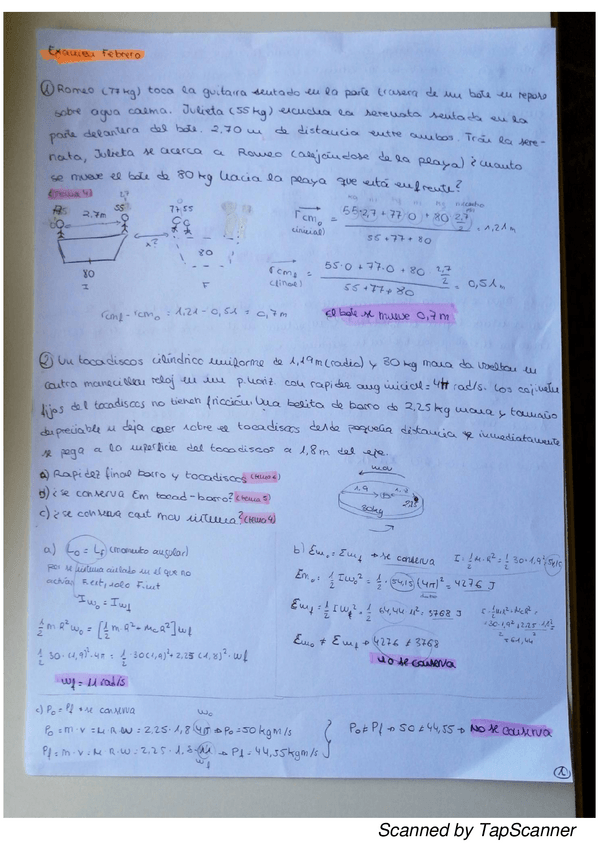 Examen Febrero
① Romeo (77kg) toca la guitarra sentado en la parte trasera de un bote en reposo
sobre agua calma. Julieta (55kg) escucha la serenata sentada en la
parte delantera del bote. 2,70 m de distancia entre ambos. Tras la sere-
nata, Julieta se acerca a Romeo (alejándose de la playa) ¿cuanto
se mueve el bote de 80 kg hacia la playa que está enfrente?
(tema 4)
2,7m
55
77,55
x?
80
I
80
F
rcm₀ (inicial) = 55·2,7 + 77·0 + 80·2,7/2 / 55+77+80 = 1,21m
rcmf (final) = 55·0 + 77·0 + 80·2,7/2 / 55+77+80 = 0,51m
rcmf - rcm₀ = 1,21 - 0,51 = 0,7m
el bote se mueve 0,7m
② Un tocadiscos cilíndrico uniforme de 1,19m (radio) y 30kg masa da vueltas en
contra manecillas reloj en un p. horiz. con rapidez ang inicial = 4π rad/s. Los
fijos del tocadiscos no tienen fricción. Una bolita de barro de 2,25kg masa y tamaño
despreciable se deja caer sobre el tocadiscos desde pequeña distancia e inmediatamente
se pega a la superficie del tocadiscos a 1,8m del eje.
a) Rapidez final barro y tocadiscos (tema 6)
b) ¿se conserva Em tocad-barro? (tema 5)
c) ¿se conserva cant mov sistema? (tema 4)
1,9
80kg
a) L₀ = Lf (momento angular)
por sistema aislado en el que no
actúan F.ext, solo F.int
Iw₀ = Iwf
½ m·R²w₀ = [½ m·R² + McR²] wf
½ 30·(1,9)²·4π = ½·30(1,9)² + 2,25 (1,8)²·wf
wf = 11 rad/s
b) Em₀ = Emf → se conserva I = ½ M·R² = ½ 30·1,9² = 54,15
Em₀ = ½ Iw₀² = ½·54,15 (4π)² = 4276 J
Emf = ½ Iwf² = ½ 11² = 3768 J
Em₀ ≠ Emf → 4276 ≠ 3768
No se conserva
c) P₀ = Pf → se conserva
P₀ = m·v = M·R·w = 2,25·1,8·4π → P₀ = 50 kgm/s
Pf = m·v = M·R·w = 2,25·1,8·11 → Pf = 44,55 kgm/s
P₀ ≠ Pf → 50 ≠ 44,55 → No se conserva
①
Scanned by TapScanner